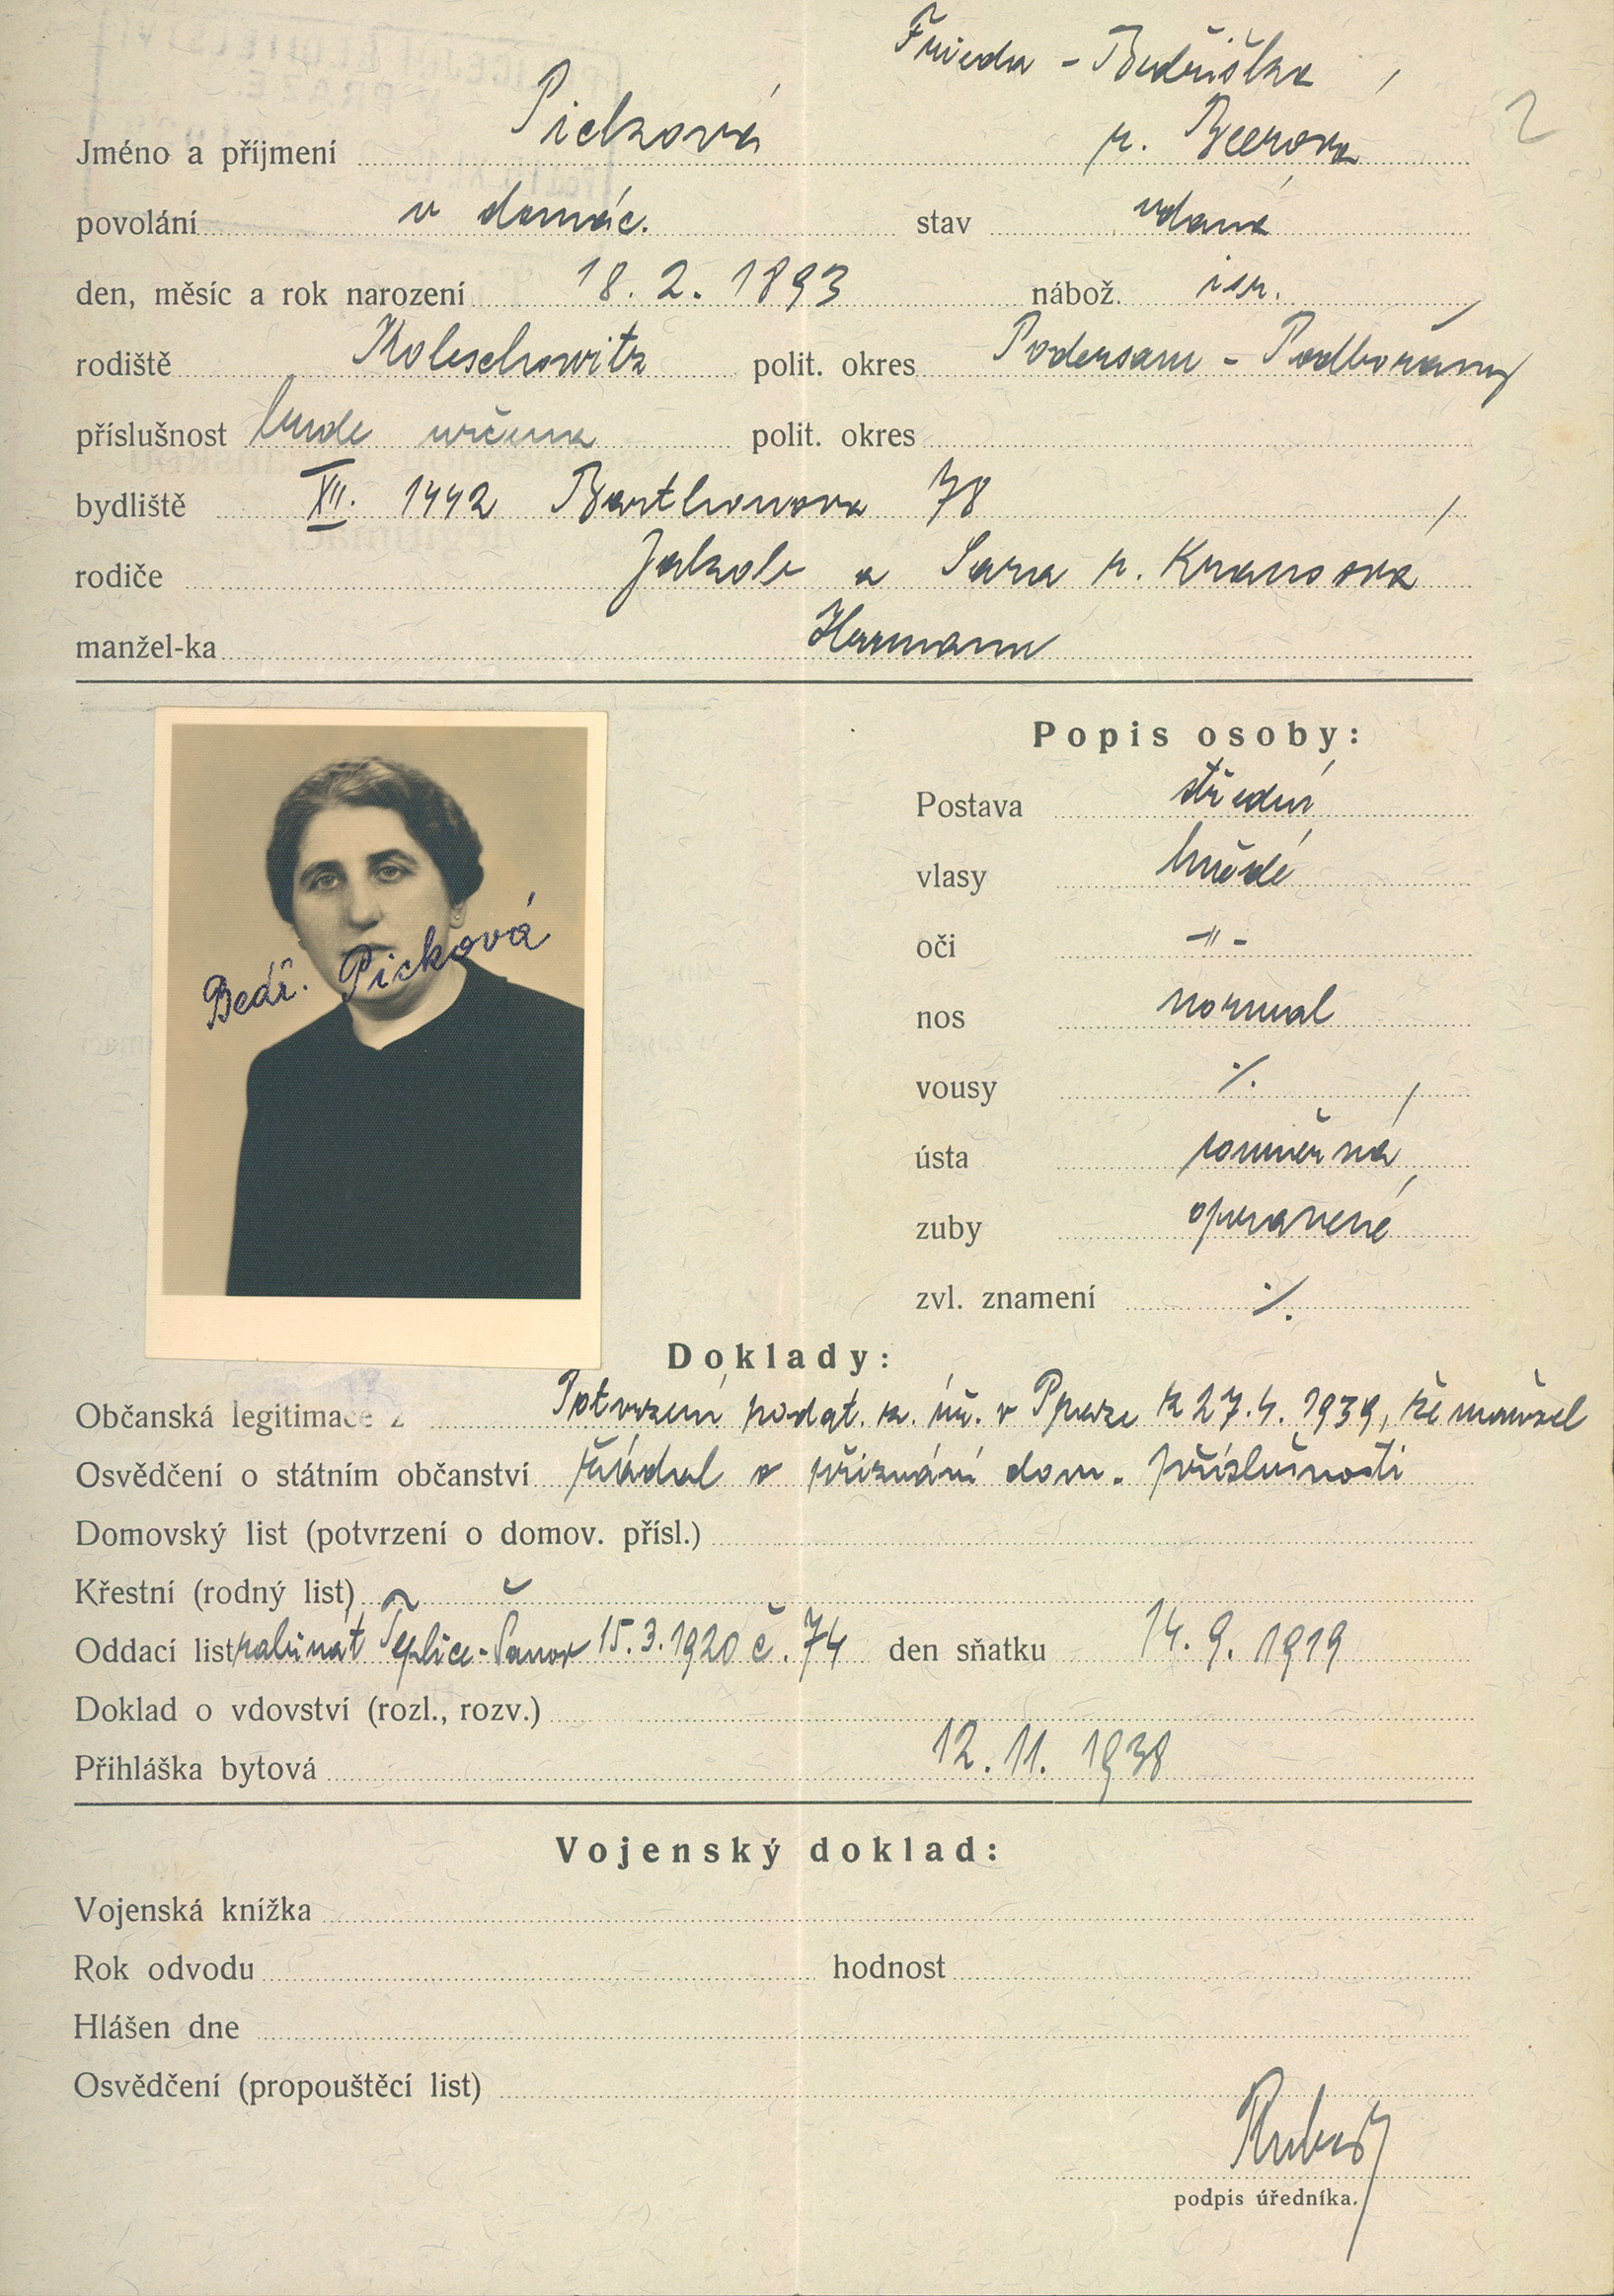 Frieda - Bedřiška
Jméno a příjmení Picková r. Beerová
povolání v domác. stav vdaná
den, měsíc a rok narození 18. 2. 1893 nábož. isr.
rodiště Koleschowitz polit. okres Podersam - Podbořany
příslušnost bude určena polit. okres
bydliště XII. 1442 Barthouova 78
rodiče Jakob a Sara r. Krausová
manžel-ka Hermann
Popis osoby:
Postava střední
vlasy hnědé
oči -"-
nos normal
vousy ⁒
ústa souměrná
zuby opravené
zvl. znamení ⁒
Bedř. Picková
Doklady:
Občanská legitimace Potvrzení podat. v Praze z 27.4. 1939, že manžel
Osvědčení o státním občanství žádal o přiznání dom. příslušnosti
Domovský list (potvrzení o domov. přísl.)
Křestní (rodný list)
Oddací list rabinát Teplice-Šanov 15.3.1920 č. 74 den sňatku 14. 9. 1919
Doklad o vdovství (rozl., rozv.)
Přihláška bytová 12. 11. 1938
Vojenský doklad:
Vojenská knížka
Rok odvodu hodnost
Hlášen dne
Osvědčení (propouštěcí list)
podpis úředníka.
2